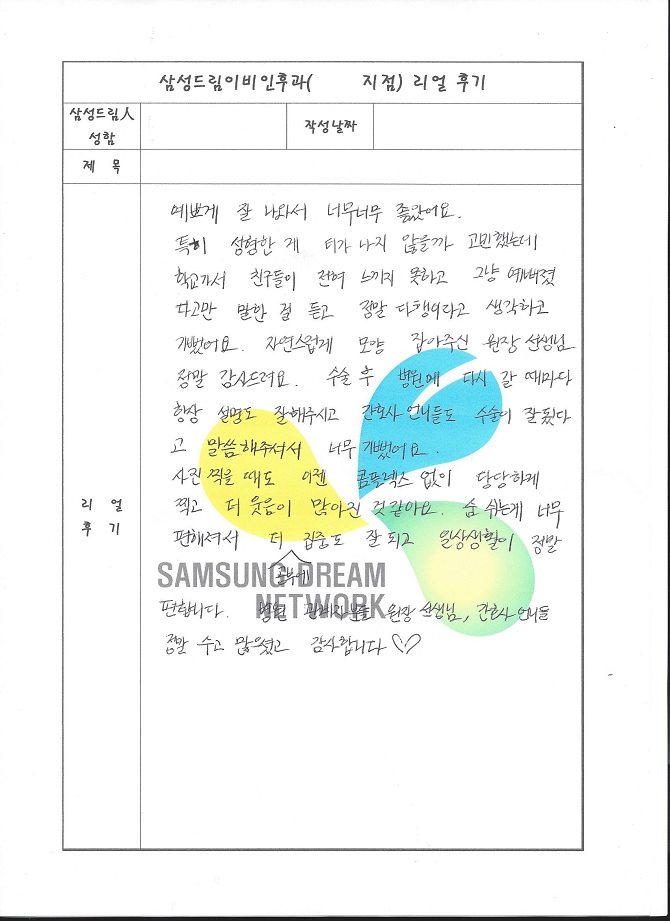 삼성드림이비인후과( 지점) 리얼 후기
삼성드림人
성함
작성날짜
제 목
예쁘게 잘 나와서 너무너무 좋았어요.
특히 성형한 게 티가 나지 않을까 고민했는데
학교가서 친구들이 전혀 느끼지 못하고 그냥 예뻐졌
다고만 말한 걸 듣고 정말 다행이라고 생각하고
기뻤어요. 자연스럽게 모양 잡아주신 원장 선생님
정말 감사드려요. 수술 후 병원에 다시 갈 때마다
항상 설명도 잘해주시고 간호사 언니들도 수술이 잘됬다
고 말씀해주셔서 너무 기뻤어요.
사진 찍을 때도 이젠 콤플렉스 없이 당당하게
리 얼
후 기
찍고 더 웃음이 많아진 것같아요. 숨 쉬는게 너무
편해져서 더 집중도 잘 되고 일상생활이 정말
공부에
SAMSUNG DREAM
NETWORK
편합니다. 병원 관계자분들 원장 선생님, 간호사 언니들
정말 수고 많으셨고 감사합니다♡